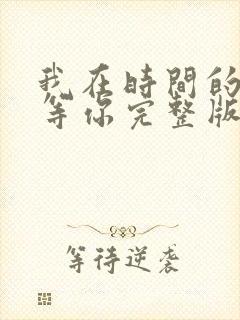 我在時間的
等你完整版
等待逆袭